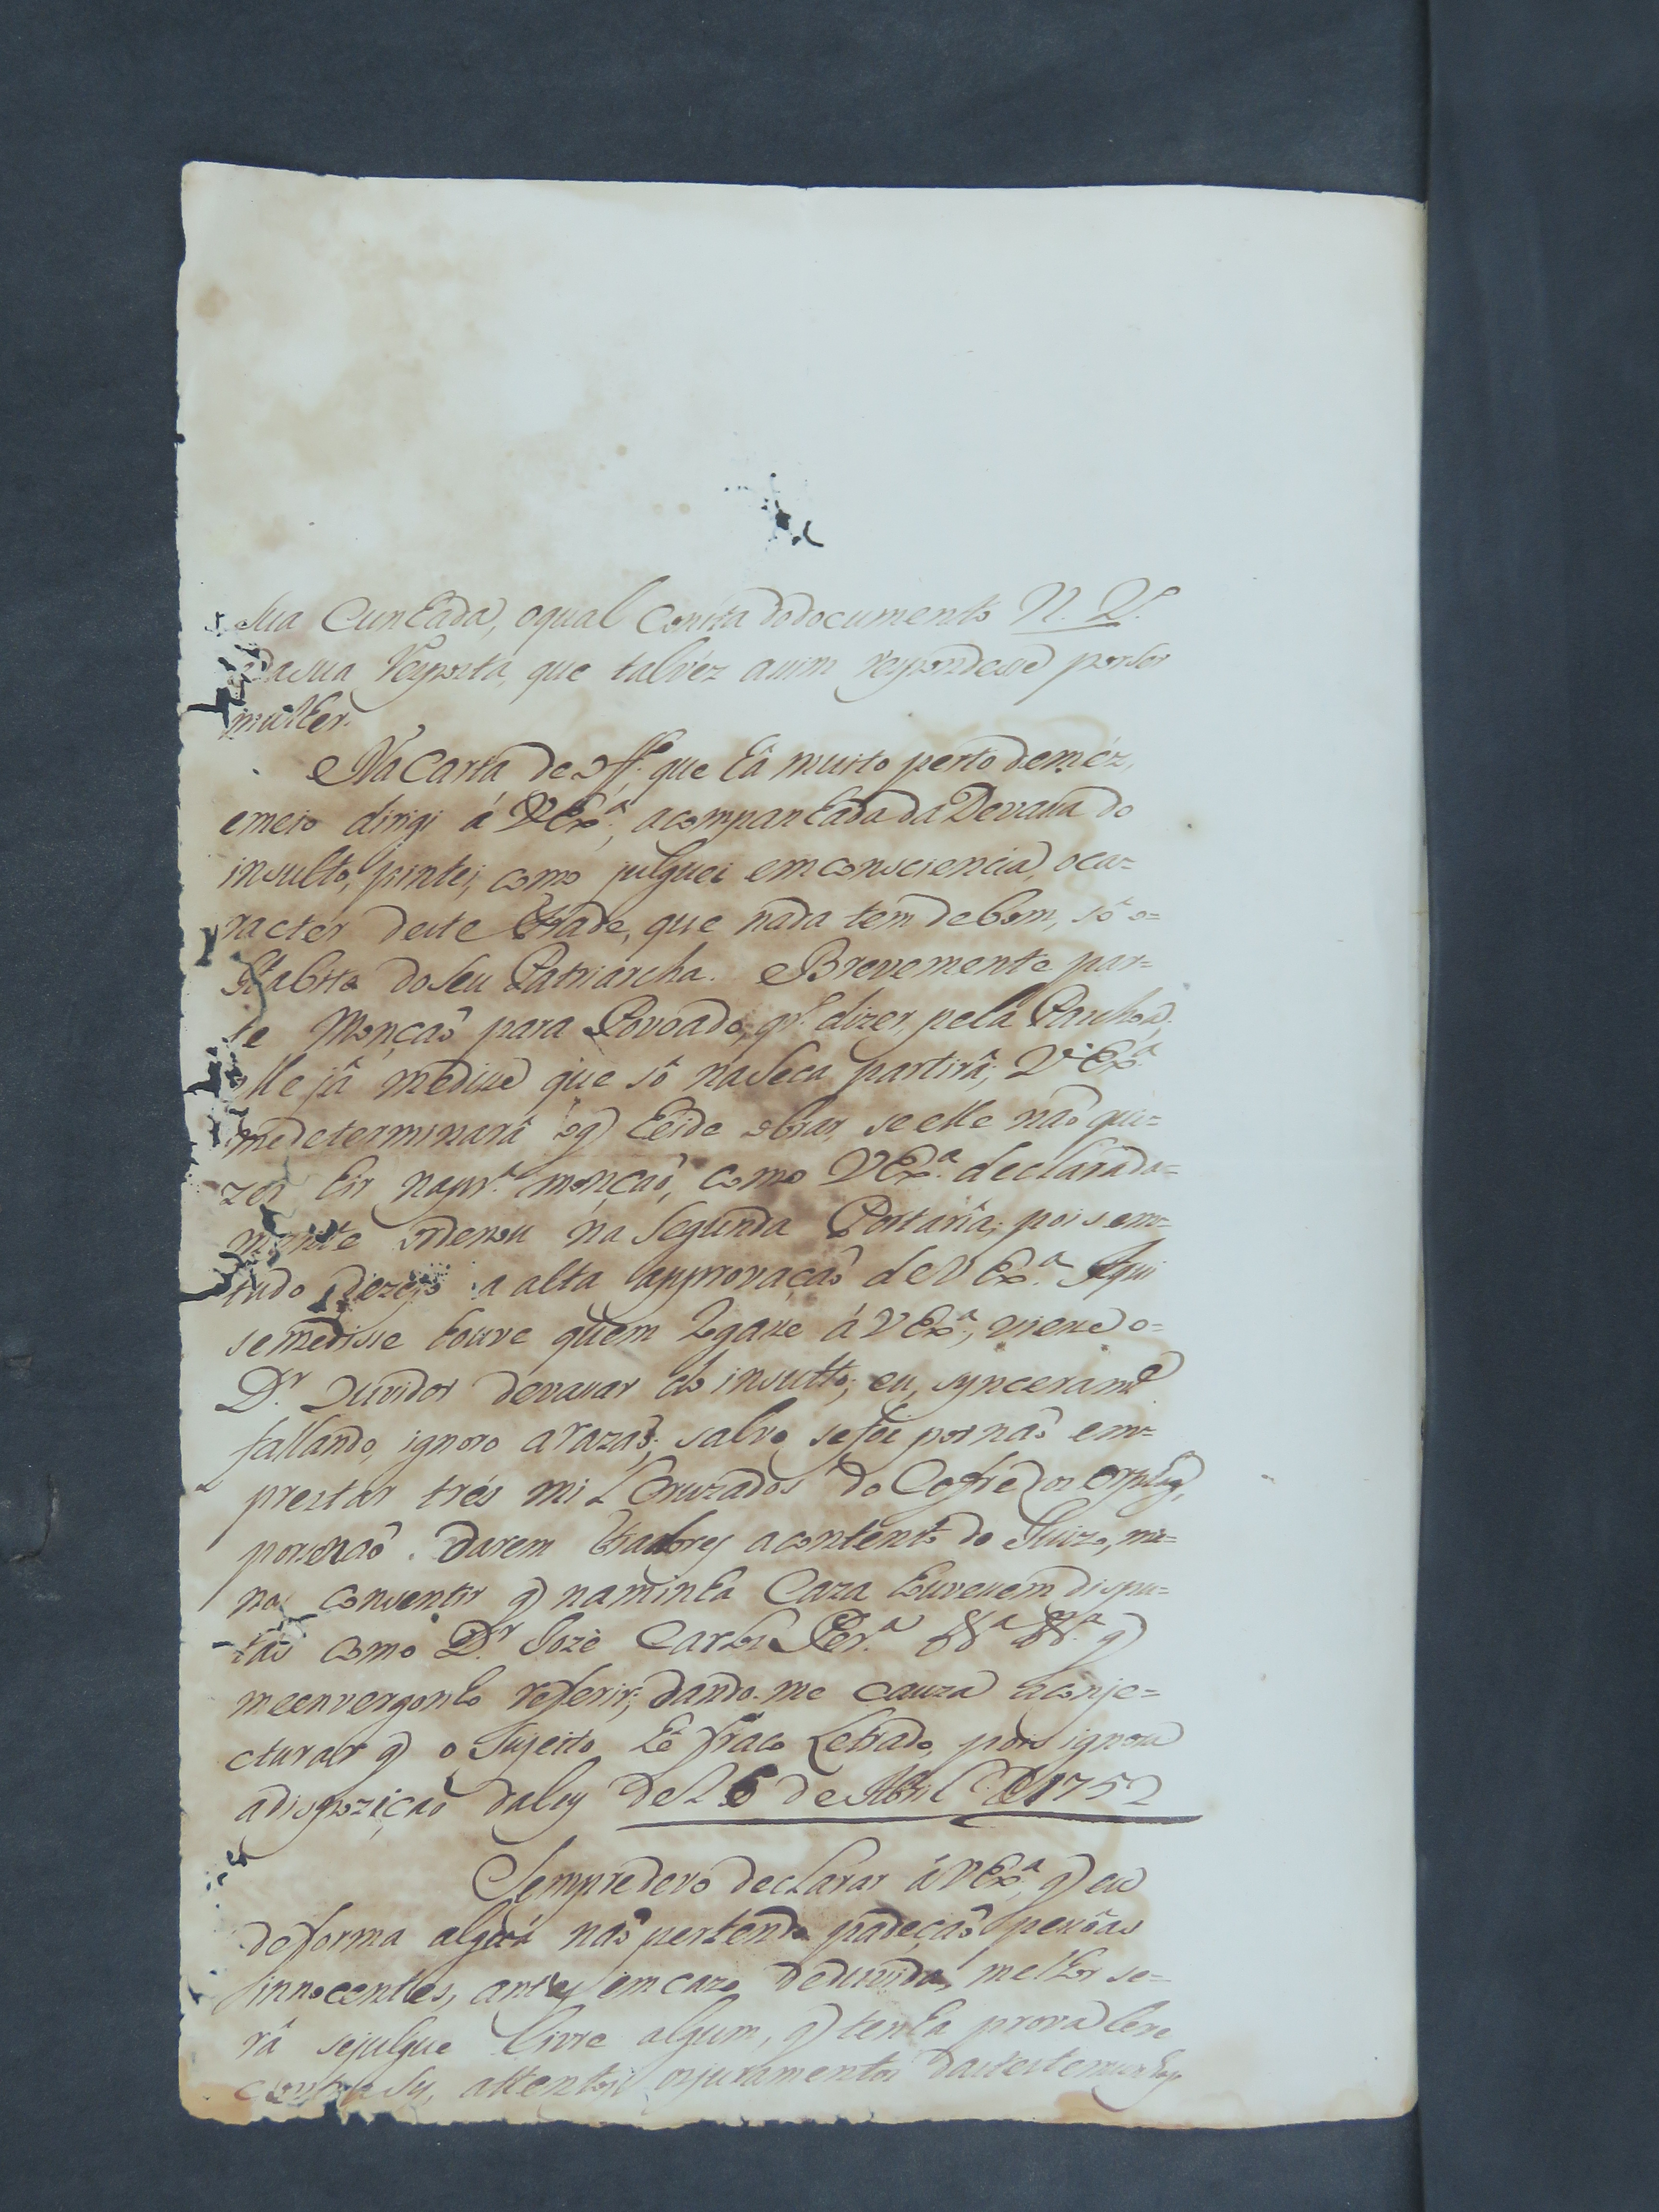 sua Cunhada, oqual consta dodocumento N. V.
dasua Resposta, que talvéz assim respondesse por ser
mulher.
Na Carta de off.º que hâ muito perto deméz,
emeio dirigi á VExª, acompanhada da Devassa do
insulto, pintei, como julguei emconsciencia, oca=
racter deste Frade, que nada tem debom, sô o=
Habito doseu Patriarcha. Brevemente par=
te Monçaõ para Povoado, qr. dizer, pela
elle jâ medisse que sô naseca partirâ; V.Exª
medeterminarâ oq heide obrar, se elle naõ qui=
zer hir naprª monçaõ, como VExª declarada=
mente ordenou na Segunda Portaria; pois em=
tudo dezejo a alta approvaçaõ deVExª. Aqui
semedisse houve quem rogasse á VExª, viesse o=
Dr. Ouvidor devassar do insulto; eu, synceramte
fallando, ignoro arazaõ; salvo sefoi pornaõ em=
prestar trés mil Cruzados do Cofre dos orphaõs,
pornaõ darem Fiadores acontento do Juizo, me=
nos consentir q naminha Caza houvessem dispu=
tas como Dr. Jozè Carlos Perª &ª &ª q
meenvergonho referir; dando-me cauza aconje=
cturar q o Sujeito hé fraco Letrado, pois ignora
adispoziçaõ daley de 26 de Abril D 1752
Sempre devo declarar áVExª, q eu
deforma algúa naõ pertendo padeçaõ pessôas
innocentes, antes emcazo deduvida, melhor se=
râ sejulgue livre algum, q tenha prova leve
contra sy, attentos osjuramentos dastestemunhas